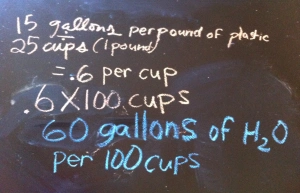 15 gallons per pound of plastic
25 cups (1 pound)
= .6 per cup
.6 X 100 cups
60 gallons of H₂O
per 100 cups